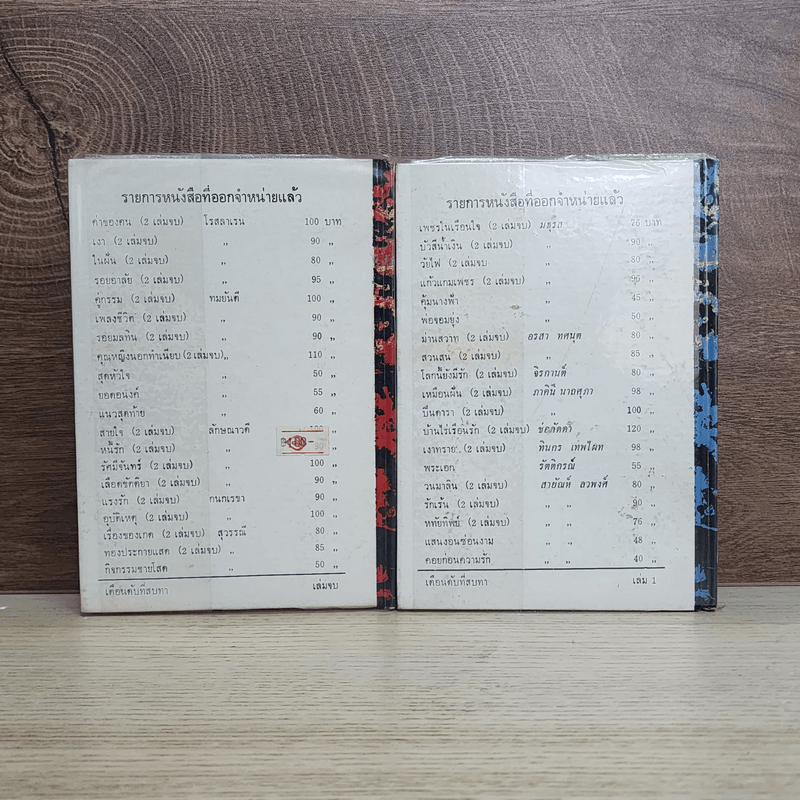 รายการหนังสือที่ออกจำหน่ายแล้ว
ค่าของคน (2 เล่มจบ) โรสลาเรน 100 บาท
เงา (2 เล่มจบ) „ 90 „
ในฝัน (2 เล่มจบ) „ 80 „
รอยอาลัย (2 เล่มจบ) „ 95 „
คู่กรรม (2 เล่มจบ) ทมยันตี 100 „
เพลงชีวิต (2 เล่มจบ) „ 90 „
รอยมลทิน (2 เล่มจบ) „ 90 „
คุณหญิงนอกทำเนียบ (2 เล่มจบ) „ 110 „
สุดหัวใจ „ 50 „
ยอดอนงค์ „ 55 „
แนวสุดท้าย „ 60 „
สายใจ (2 เล่มจบ) ลักษณาวดี „
หนี้รัก (2 เล่มจบ) „ „
รัศมีจันทร์ (2 เล่มจบ) „ 100 „
เลือดขัตติยา (2 เล่มจบ) „ 90 „
แรงรัก (2 เล่มจบ) กนกเรขา 90 „
อุบัติเหตุ (2 เล่มจบ) „ 100 „
เรื่องของเกด (2 เล่มจบ) สุวรรณี 80 „
ทองประกายแสด (2 เล่มจบ) „ 85 „
กิจกรรมชายโสด „ 50 „
เดือนดับที่สบทา เล่มจบ
รายการหนังสือที่ออกจำหน่ายแล้ว
เพชรในเรือนใจ (2 เล่มจบ) มธุรส 75 บาท
บัวสีน้ำเงิน (2 เล่มจบ) „ 90 „
วัยไฟ (2 เล่มจบ „ 80 „
แก้วแกมเพชร (2 เล่มจบ) „ 95 „
คุ้มนางฟ้า „ 45 „
พอจอมยุ่ง „ 50 „
ม่านสวาท (2 เล่มจบ) อรสา ทศนุต 80 „
สวนสน (2 เล่มจบ) „ 85 „
โลกนี้ยังมีรัก (2 เล่มจบ) จิรกานต์ 80 „
เหมือนฝัน (2 เล่มจบ) ภาคินี นาถศุภา 98 „
ปิ่นดารา (2 เล่มจบ) „ 100 „
บ้านไร่เรือนรัก (2 เล่มจบ) ช่อภัคตร์ 120 „
เงาทราย (2 เล่มจบ) ทินกร เทพไผท 98 „
พระเอก รัตติกรณ์ 55 „
วนมาลิน (2 เล่มจบ) สายัณห์ ลวพงศ์ 80 „
รักเร้น (2 เล่มจบ) „ „ 90 „
หทัยทิพย์ (2 เล่มจบ) „ „ 76 „
แสนงอนซ่อนงาม „ „ 48 „
คอยก่อนความรัก „ „ 40 „
เดือนดับที่สบทา เล่ม 1